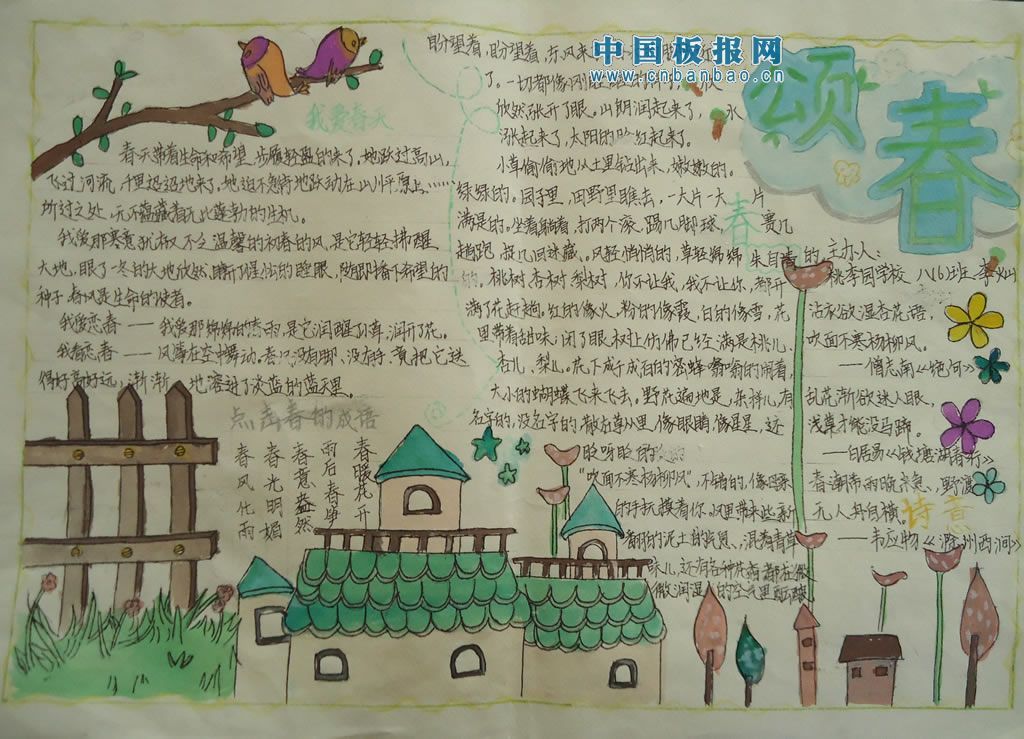 中国板报网
www.cnbanbao.cn
颂春
我爱春天
春天带着生命和希望,步履轻盈的来了,她跃过高山,
飞过河流,千里迢迢地来了,她迫不急待地跃动在山川平原上……
所过之处,无不蕴藏着无比蓬勃的生机。
我爱那寒意犹极,不乏温馨的初春的风,是它轻轻拂醒
大地,眠了一冬的大地欣然睁开惺忪的睡眼,随即播下希望的
种子,春风是生命的使者。
我爱恋春——我爱那绵绵的春雨,是它润醒了小草,润开了花。
我看恋春——风筝在空中舞动。
得好高好远,渐渐地溶进了淡蓝的蓝天里。
点击春的成语
春暖花开
雨后春笋
春意盎然
春光明媚
春风化雨
盼望着,盼望着,东风来
了。一切都像刚
欣然张开了眼。山朗润起来了,水
涨起来了,太阳的脸红起来了。
小草偷偷地从土里钻出来,嫩嫩的。
绿绿的。园子里,田野里瞧去,一大片一大片
满是的。坐着躺着,打两个滚,踢几脚球,赛几
趟跑,捉几回迷藏。风轻悄悄的,草轻绵绵
的。桃树,杏树,梨树,你不让我,我不让你,都开
满了花赶趟。红的像火,粉的像霞,白的像雪,花
里带着甜味,闭了眼,树上仿佛已经满是桃儿,
杏儿,梨儿。花下成千成百的蜜蜂嗡嗡的闹着,
大小的蝴蝶飞来飞去。野花遍地是,杂样儿,有
名字的,没名字的,散在草丛里,像眼睛,像星星,还
眨呀眨的。
"吹面不寒杨柳风",不错的,像母亲
的手抚摸着你,风里带来些新
翻的泥土的气息,混着青草
味儿,还有各种花香,都在微
微润湿的空气里酝酿
春
朱自清
的主办人:
桃李园学校 八(6)班
沾衣欲湿杏花雨,
吹面不寒杨柳风。
——僧志南《绝句》
乱花渐欲迷人眼,
浅草才能没马蹄。
——白居易《钱塘湖春行》
春潮带雨晚来急,野渡
无人舟自横。
——韦应物《滁州西涧》
诗意